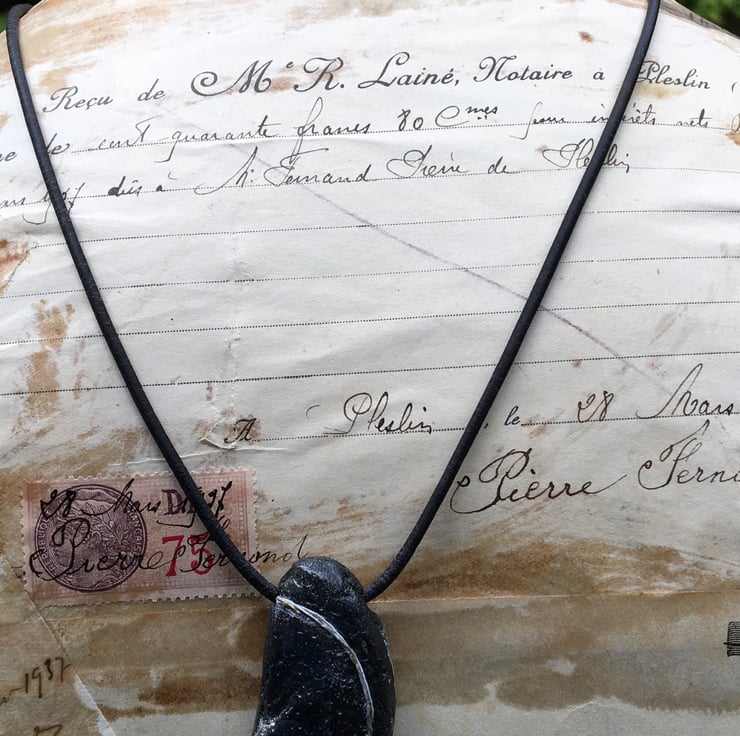 Reçu de Me R. Lainé, Notaire à Pleslin (
de cent quarante francs 80 Cmes pour intérêts nets
dûs à M. Fernand Pierre de Pleslin
A Pleslin, le 28 Mars
Pierre Ferna
28 Mars 1937
75
Pierre Fernand
1937